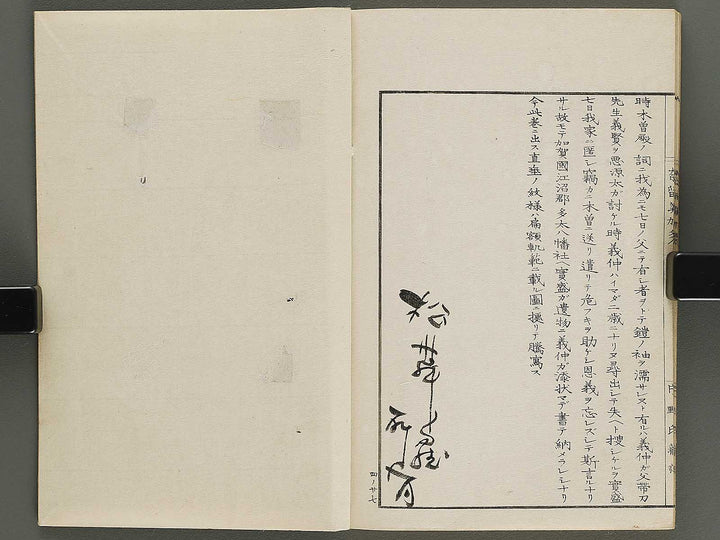 時木曽殿ノ詞ニ我為ニモ七日ノ父ニテ有シ者ヲトテ鎧ノ袖ヲ濡サレスト有ルハ義仲ガ父帯刀
先生義賢ヲ悪源太ガ討ケル時義仲ハイマダ二歳ニナリヌ尋出シテ失ヘト捜シケルヲ實盛
七日我家ニ匿シ竊カニ木曽ニ送リ遣リテ危フキヲ助ケシ恩義ヲ忘レズシテ斯言ルナリ
サル故モテ加賀國江沼郡多太八幡社ヘ實盛ガ遺物ニ義仲ガ添状マデ書テ納メラレシナリ
今此巻ニ出ス直垂ノ紋様ハ扁額軌範ニ載ル圖ニ據リテ騰寫ス
四ノ廿七